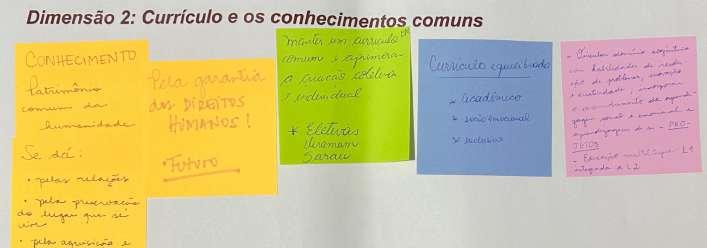 Dimensão 2: Currículo e os conhecimentos comuns
CONHECIMENTO
Patrimônio
comum da
humanidade
Se dá:
• pelas relações
• pela preservação
do lugar que se
vive
• pela aquisição e
Pela garantia
dos DIREITOS
HUMANOS!
• Futuro
manter um currículo
comum e aprimorar
a criação coletiva
e individual
* Eletivas
Sarau
Currículo equilibrado
* acadêmico
* sócio emocional
* inclusivo
- Vincular domínio
com habilidades de
de problemas,
e criatividade,
e
aprendizagem de si - PRO-
JETOS
- Educação multilíngue L1
integrada a L2